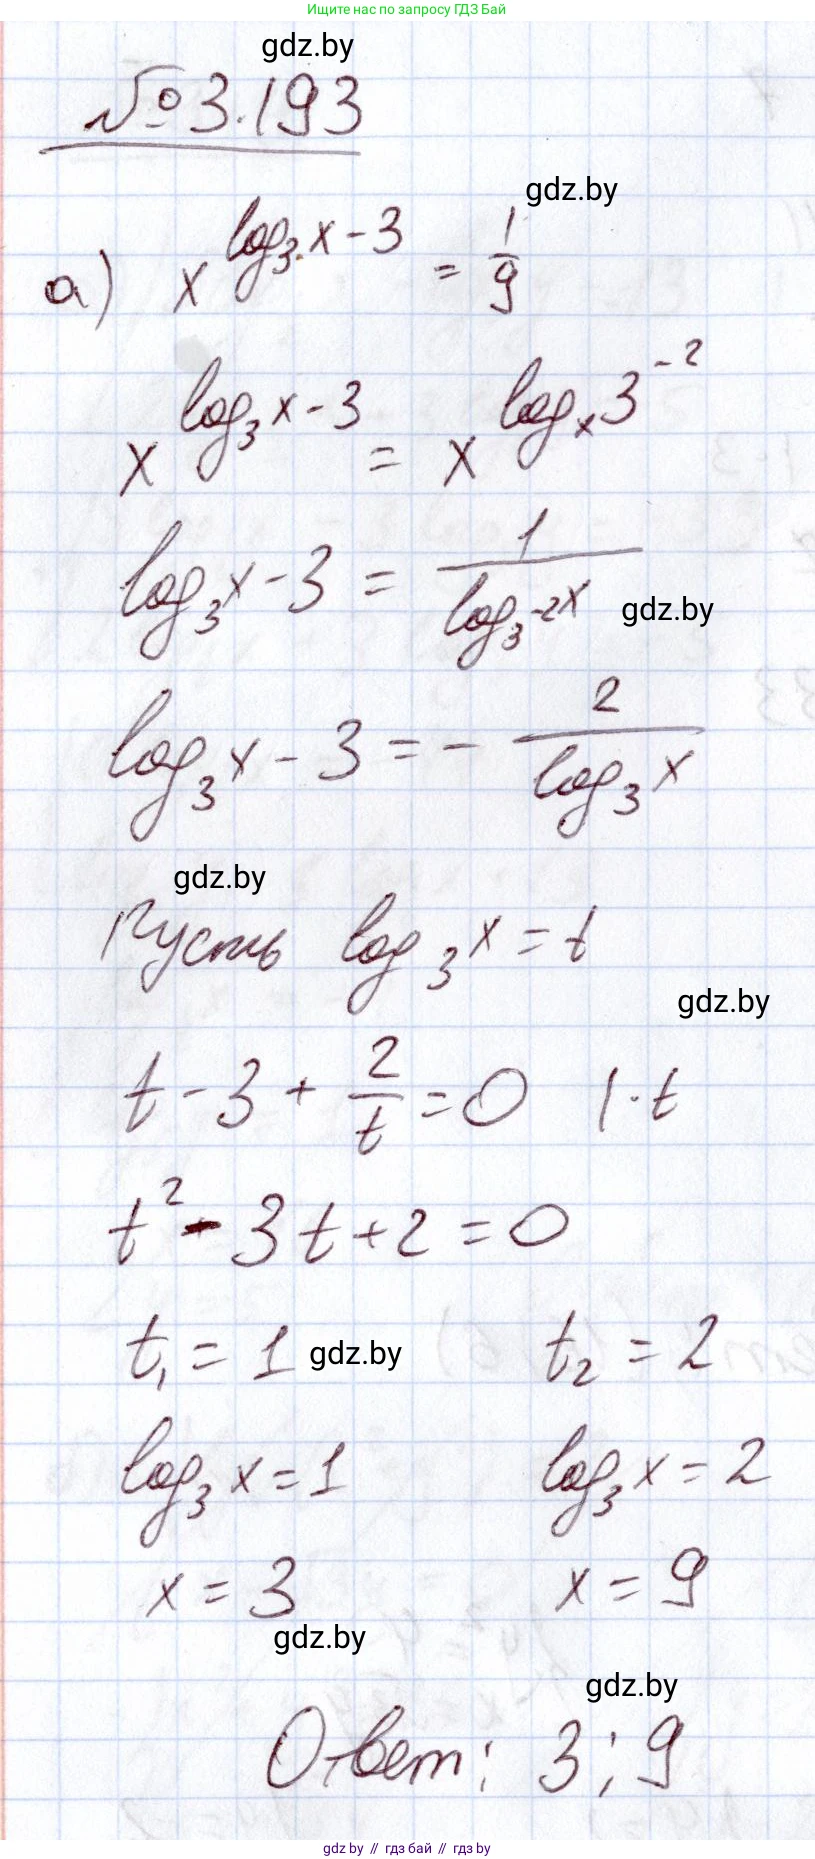 Ищите нас по запросу ГДЗ Бай
gdz.by
№ 3.193
gdz.by
а) x^(log₃ x - 3) = 1/9
x^(log₃ x - 3) = x^(logₓ 3⁻²)
log₃ x - 3 = 1/(log₃⁻² x)
gdz.by
log₃ x - 3 = - 2/(log₃ x)
gdz.by
Пусть log₃ x = t
gdz.by
t - 3 + 2/t = 0 | · t
t² - 3t + 2 = 0
t₁ = 1 gdz.by t₂ = 2
log₃ x = 1 log₃ x = 2
x = 3 x = 9
gdz.by
gdz.by
Ответ: 3; 9
gdz by // гдз бай // gdz by